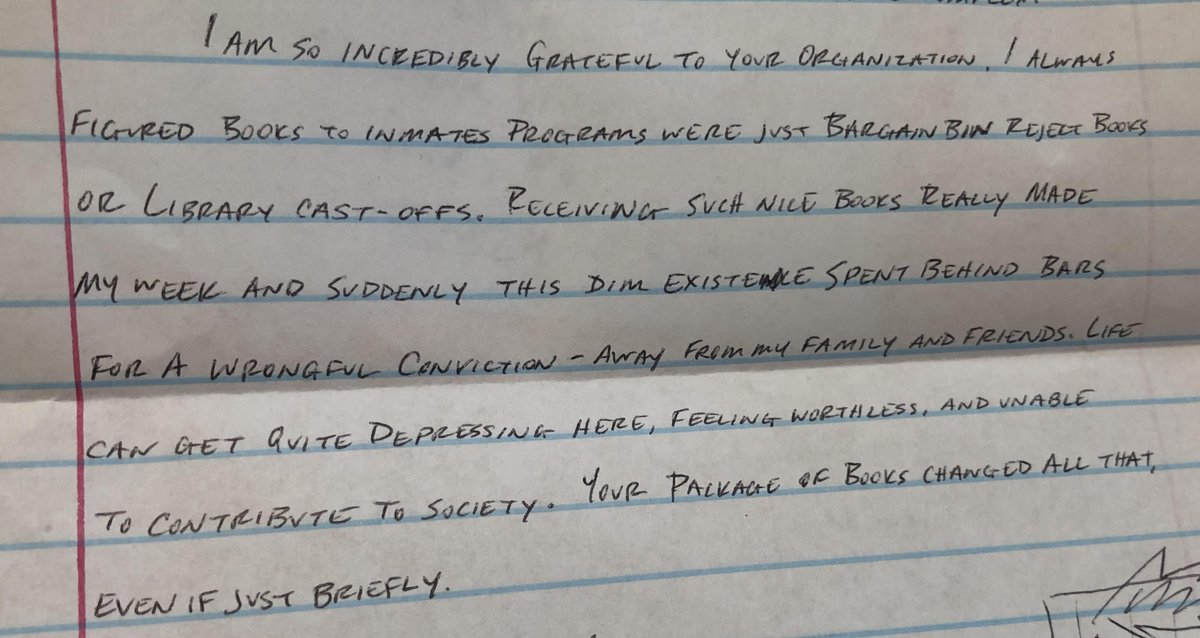 I AM SO INCREDIBLY GRATEFUL TO YOUR ORGANIZATION. I ALWAYS
FIGURED BOOKS TO INMATES PROGRAMS WERE JUST BARGAIN BIN REJECT BOOKS
OR LIBRARY CAST-OFFS. RECEIVING SUCH NICE BOOKS REALLY MADE
MY WEEK AND SUDDENLY THIS DIM EXISTENCE SPENT BEHIND BARS
FOR A WRONGFUL CONVICTION - AWAY FROM MY FAMILY AND FRIENDS. LIFE
CAN GET QUITE DEPRESSING HERE, FEELING WORTHLESS, AND UNABLE
TO CONTRIBUTE TO SOCIETY. YOUR PACKAGE OF BOOKS CHANGED ALL THAT,
EVEN IF JUST BRIEFLY.